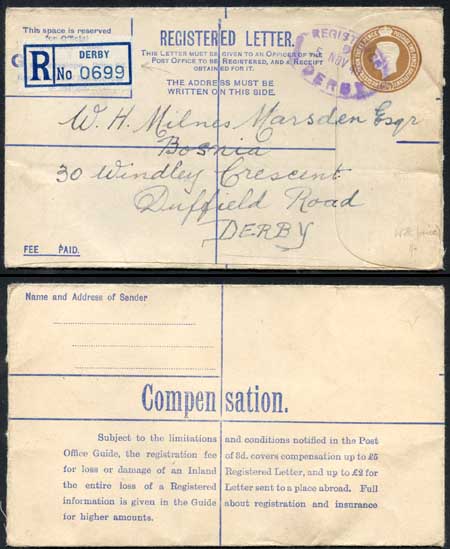 This space is reserved
for Official
R
DERBY
No 0699
REGISTERED LETTER.
THIS LETTER MUST BE GIVEN TO AN OFFICER OF THE
POST OFFICE TO BE REGISTERED, AND A RECEIPT
OBTAINED FOR IT.
THE ADDRESS MUST BE
WRITTEN ON THIS SIDE.
REGISTERED
NOV
DERBY
W. H. Milnes Marsden Esqr
Bosnia
30 Windley Crescent
Duffield Road
DERBY
FEE PAID.
Name and Address of Sender
Compensation.
Subject to the limitations and conditions notified in the Post
Office Guide, the registration fee of 3d. covers compensation up to £5
for loss or damage of an Inland Registered Letter, and up to £2 for
the entire loss of a Registered Letter sent to a place abroad. Full
information is given in the Guide about registration and insurance
for higher amounts.